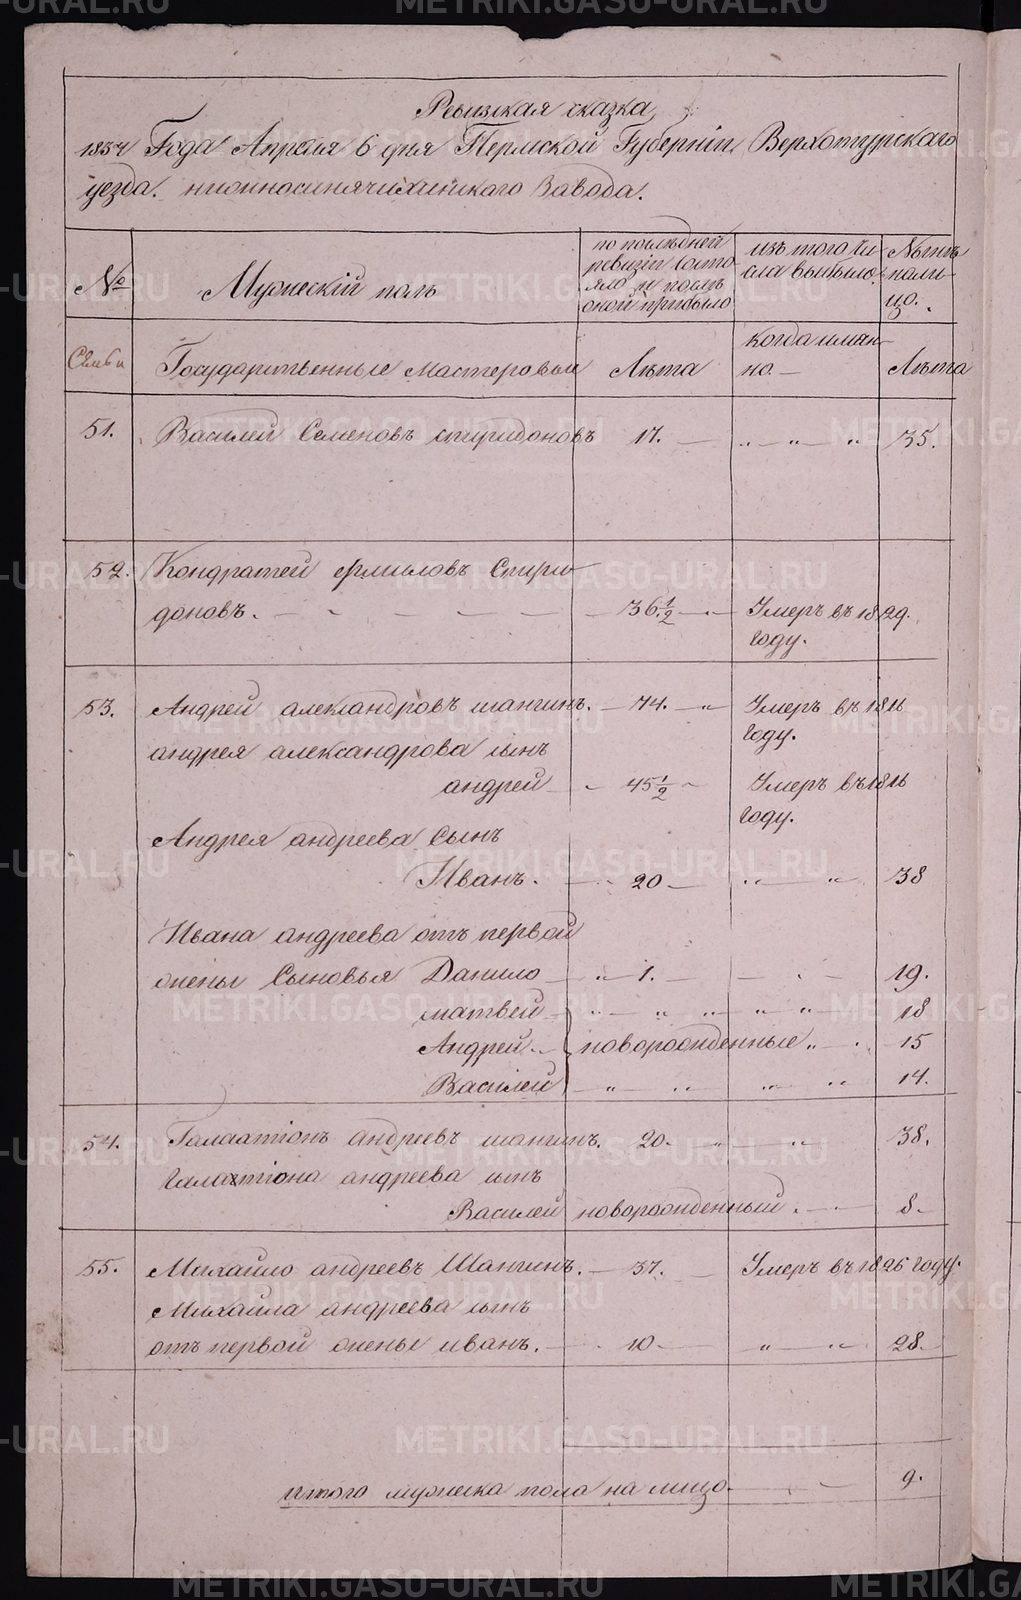 Ревизская сказка,
1834 Года Апреля 6 дня Пермской Губерніи Верхотурскаго
уезда. нижносинячихинскаго Завода.
№
Мужескій полъ
по последней
ревизіи состо
яло и после
оной прибыло
изъ того чи
сла выбыло.
Ныне
на ли-
цо.
Семьи
Государственные мастеровые
Лета
когда имян-
но. —
Лета
51. Василей Семеновъ спиридоновъ 17. — „ — „ — „ 35.
52. Кондратей Ермиловъ Спири
доновъ. — 36 1/2 — Умеръ въ 1829.
году.
53. Андрей александровъ шангинъ. — 74. — „ Умеръ въ 1816
году.
андрея александрова сынъ
андрей — 45 1/2 — Умеръ въ 1816
году.
Андрея андреева Сынъ
Иванъ. — 20 — „ — „ 38
Ивана андреева отъ первой
жены Сыновья Данило — „ 1. — 19.
матвей „ — „ „ „ „ 18
Андрей. новорожденные „ — 15
Василей „ „ „ „ 14.
54. Галактіонъ андреевъ шангинъ. 20. „ „ 38.
Галактіона андреева сынъ
Василей новорожденный. — 8.
55. Михайло андреевъ Шангинъ. — 37. — Умеръ въ 1826 году.
Михаила андреева сынъ
отъ первой жены иванъ. — 10 — „ — „ 28.
итого мужеска пола на лицо. — 9.
METRIKI.GASO-URAL.RU